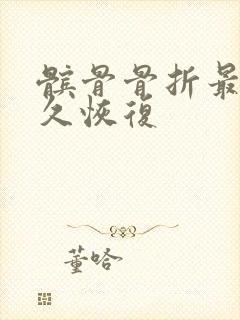 髌骨骨折最
久恢復
董哈